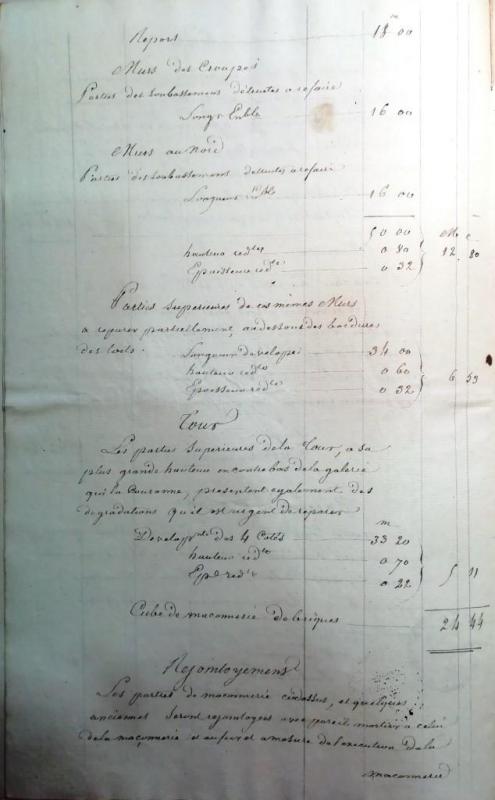 Report 18 00
Murs des Croupes
Parties des soubassement détruites a refaire
Longr Enble 16 00
Murs au Nord
Parties des soubassemens detruites a refaire
Longueur 16 00
50 00 M c
hauteur redte 0 80 12 80
Epaisseur redte 0 32
Parties Superieures de ces mêmes Murs
a reparer partiellement, au dessous des bordures
des toits.
Longueur developée 34 00
hauteur redte 0 60
Epaisseur redte 0 32 6 53
Tour
Les parties Superieures de la Tour, a sa
plus grande hauteur en contrebas de la galerie
qui la Couronne, presentent egalement des
degradations qu'il est urgent de reparer
m
Developt des 4 Cotés 33 20
hauteur redte 0 70
Epr redte 0 22 5 11
Cube de maçonnerie de briques 24 44
Rejointoyement
Les parties de maçonnerie cidessus, et quelques
anciennes seront rejointoyées avec pareil mortier a celui
de la maçonnerie et au fur et a mesure de l'execution de la
maçonnerie